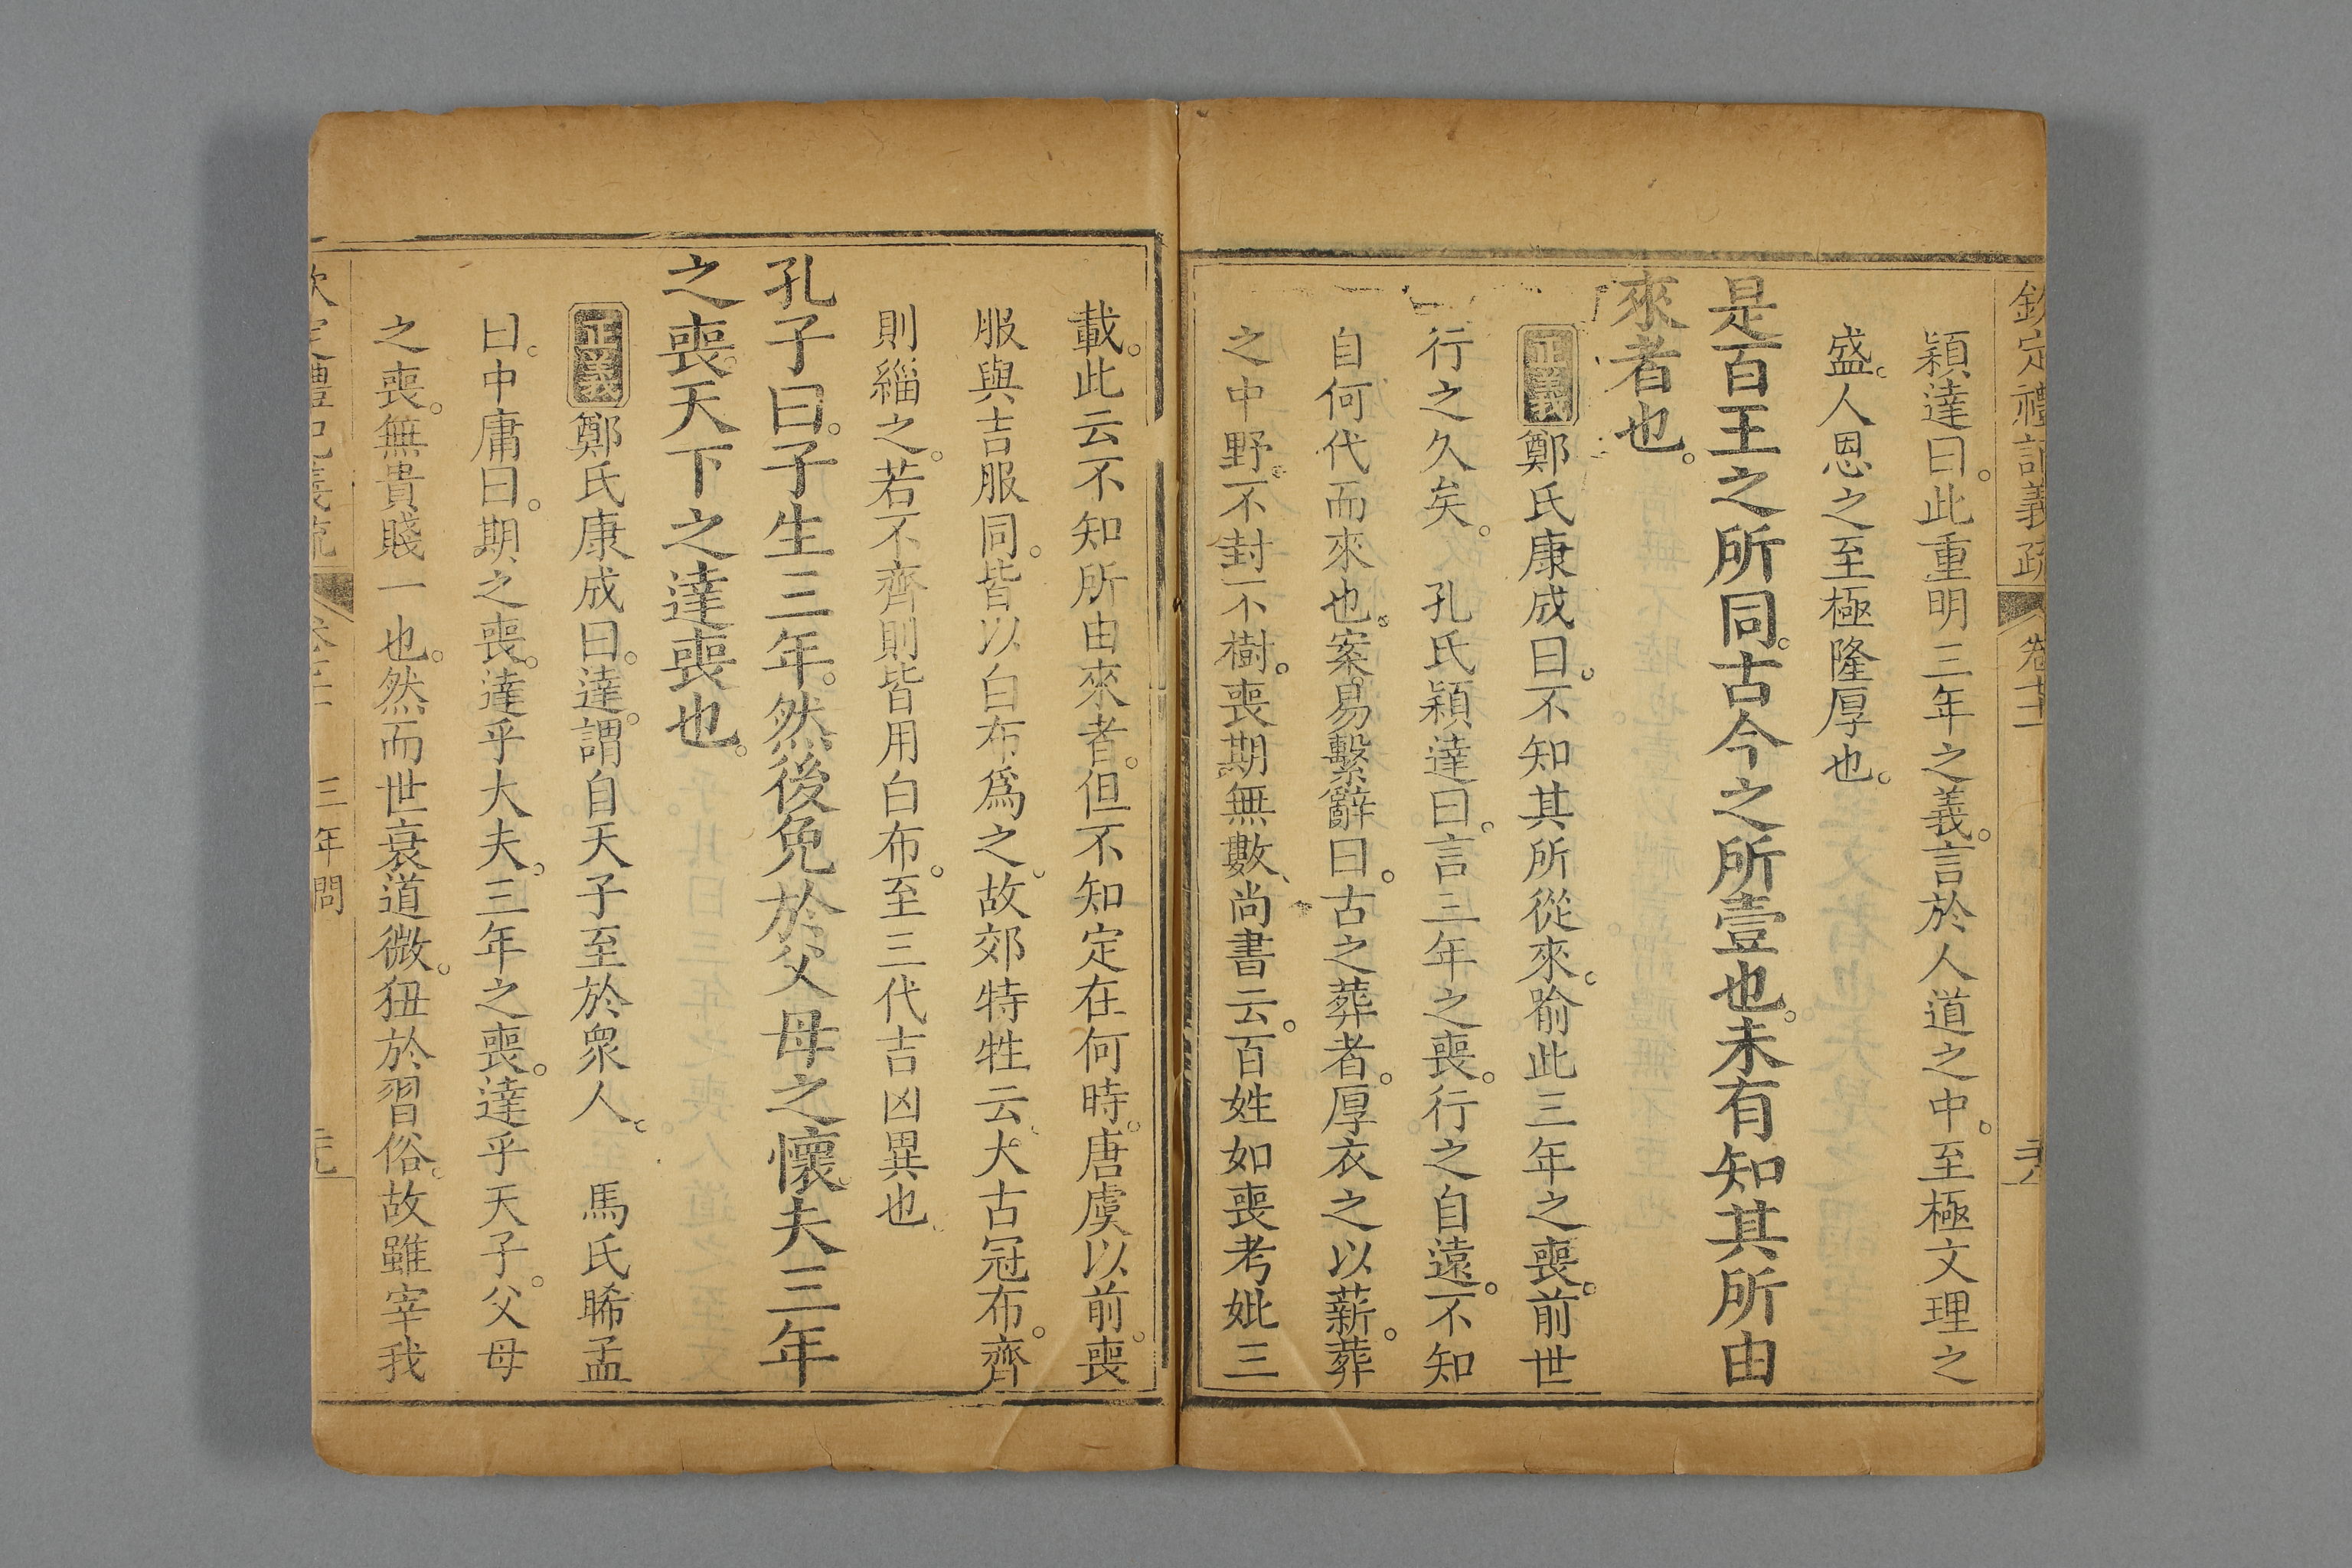 欽定禮記義疏 卷 三六
穎達曰。此重明三年之義。言於人道之中。至極文理之
盛。人恩之至極隆厚也。
是百王之所同。古今之所壹也。未有知其所由
來者也。
正義 鄭氏康成曰。不知其所從來。喻此三年之喪。前世
行之久矣。 孔氏穎達曰。言三年之喪。行之自遠。不知
自何代而來也。案易繫辭曰。古之葬者。厚衣之以薪。葬
之中野。不封不樹。喪期無數。尚書云。百姓如喪考妣三
載。此云不知所由來者。但不知定在何時。唐虞以前。喪
服與吉服同。皆以白布爲之。故郊特牲云。大古冠布。齊
則緇之。若不齊則皆用白布。至三代吉凶異也
孔子曰。子生三年。然後免於父母之懷。夫三年
之喪。天下之達喪也。
正義 鄭氏康成曰。達。謂自天子至於衆人。 馬氏睎孟
曰。中庸曰。期之喪。達乎大夫。三年之喪。達乎天子。父母
之喪。無貴賤一也。然而世衰道微。狃於習俗。故雖宰我
欽定禮記義疏 三年問